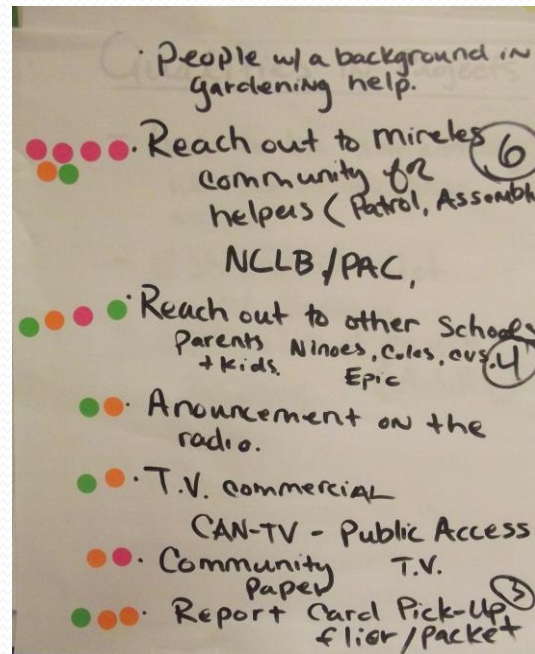 · People w/a background in
gardening help.
· Reach out to mireles 6
community for
helpers (Patrol, Assembl
NCLB/PAC,
· Reach out to other Schools
Parents Ninoes, Coles, cvs. 4
+ Kids. Epic
· Anouncement on the
radio.
· T.V. commercial
CAN-TV - Public Access
T.V.
· Community
Paper
· Report Card Pick-Up 3
flier/packet